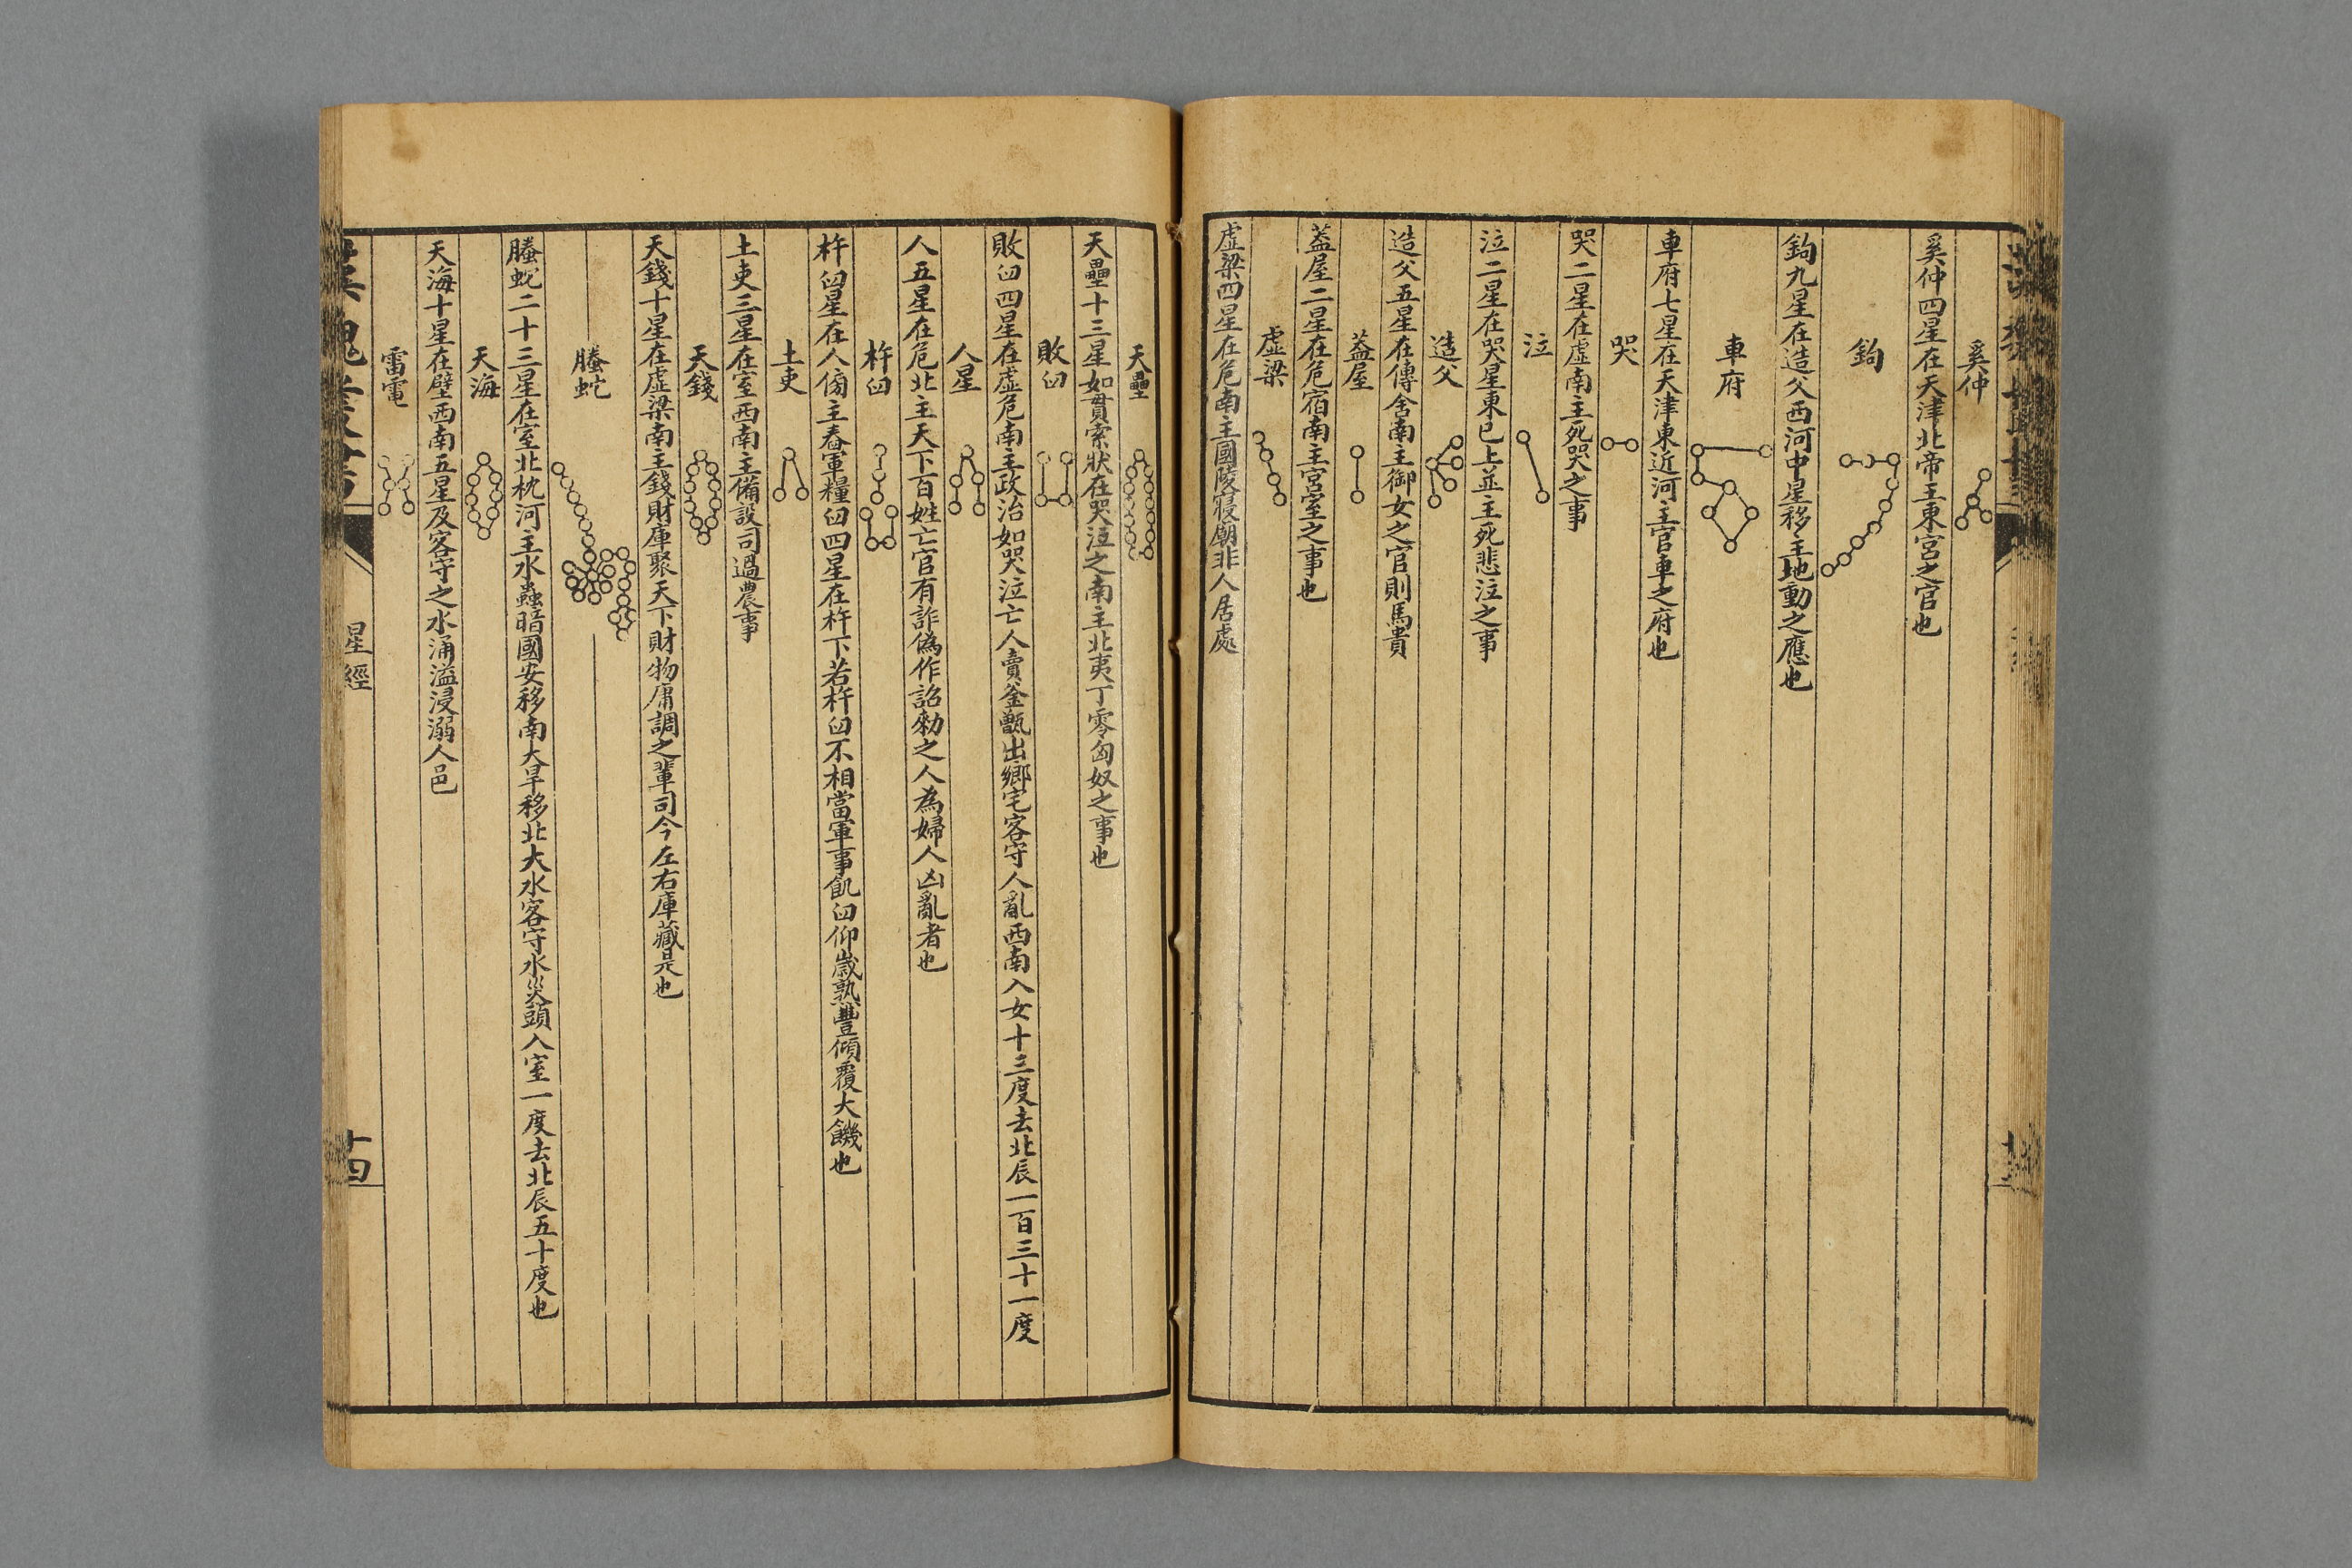 奚仲
奚仲四星在天津北帝王東宮之官也
鉤
鉤九星在造父西河中星移主地動之應也
車府
車府七星在天津東近河主官車之府也
哭
哭二星在虛南主死哭之事
泣
泣二星在哭星東已上並主死悲泣之事
造父
造父五星在傳舍南主御女之官則馬貴
蓋屋
蓋屋二星在危宿南主宮室之事也
虛梁
虛梁四星在危南主國陵寢廟非人居處
天壘
天壘十三星如貫索狀在哭泣之南主北夷丁零匈奴之事也
敗臼
敗臼四星在虛危南主政治如哭泣亡人賣釜甑出鄉宅客守人亂西南入女十三度去北辰一百三十一度
人星
人五星在危北主天下百姓亡官有詐偽作詔勑之人為婦人凶亂者也
杵臼
杵臼星在人傍主舂軍糧臼四星在杵下若杵臼不相當軍事飢臼仰歲熟豐傾覆大饑也
土吏
土吏三星在室西南主備設司過農事
天錢
天錢十星在虛梁南主錢財庫聚天下財物庸調之輩司今左右庫藏是也
螣蛇
螣蛇二十三星在室北枕河主水蟲暗國安移南大旱移北大水客守水災頭入室一度去北辰五十度也
天海
天海十星在壁西南五星及客守之水涌溢浸溺人邑
雷電
星經
十四